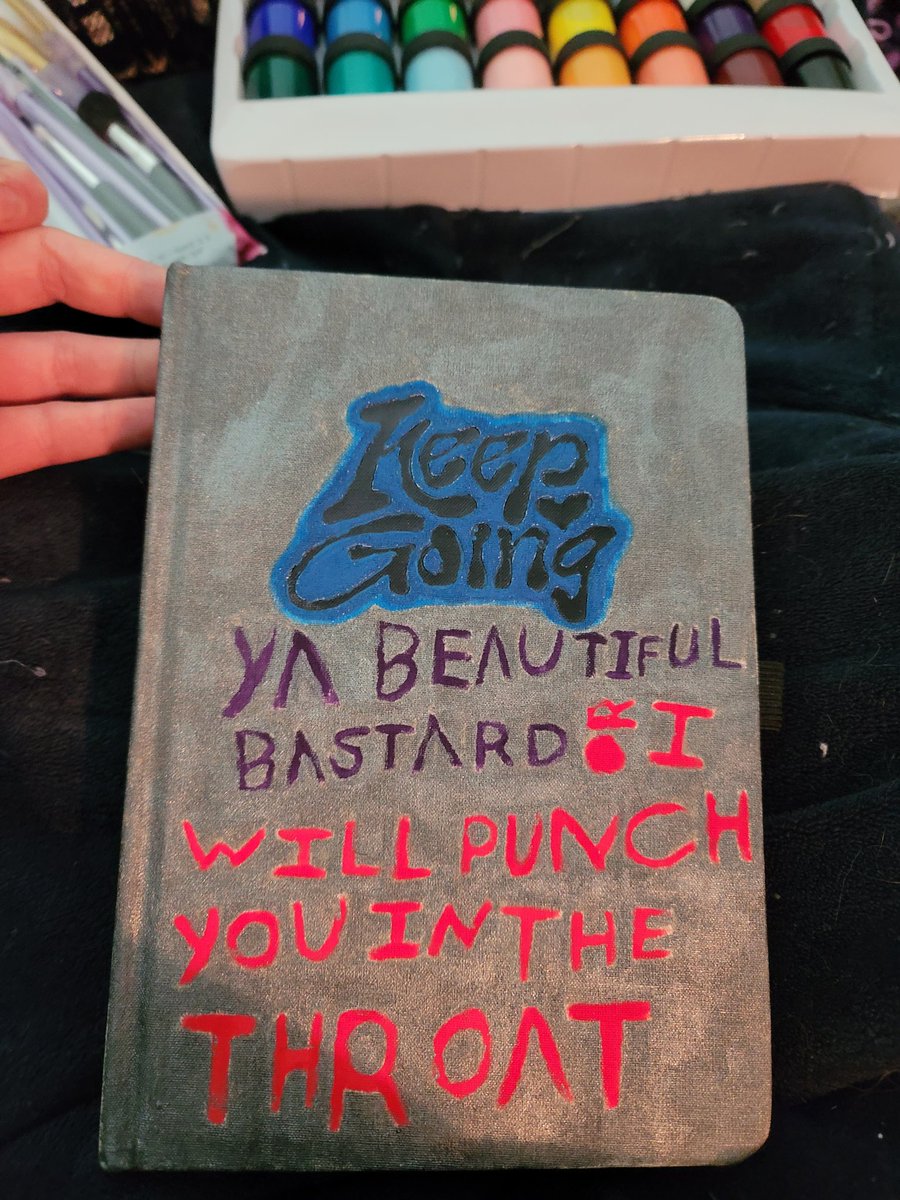 Keep
Going
YA BEAUTIFUL
BASTARD OR I
WILL PUNCH
YOU IN THE
THROAT